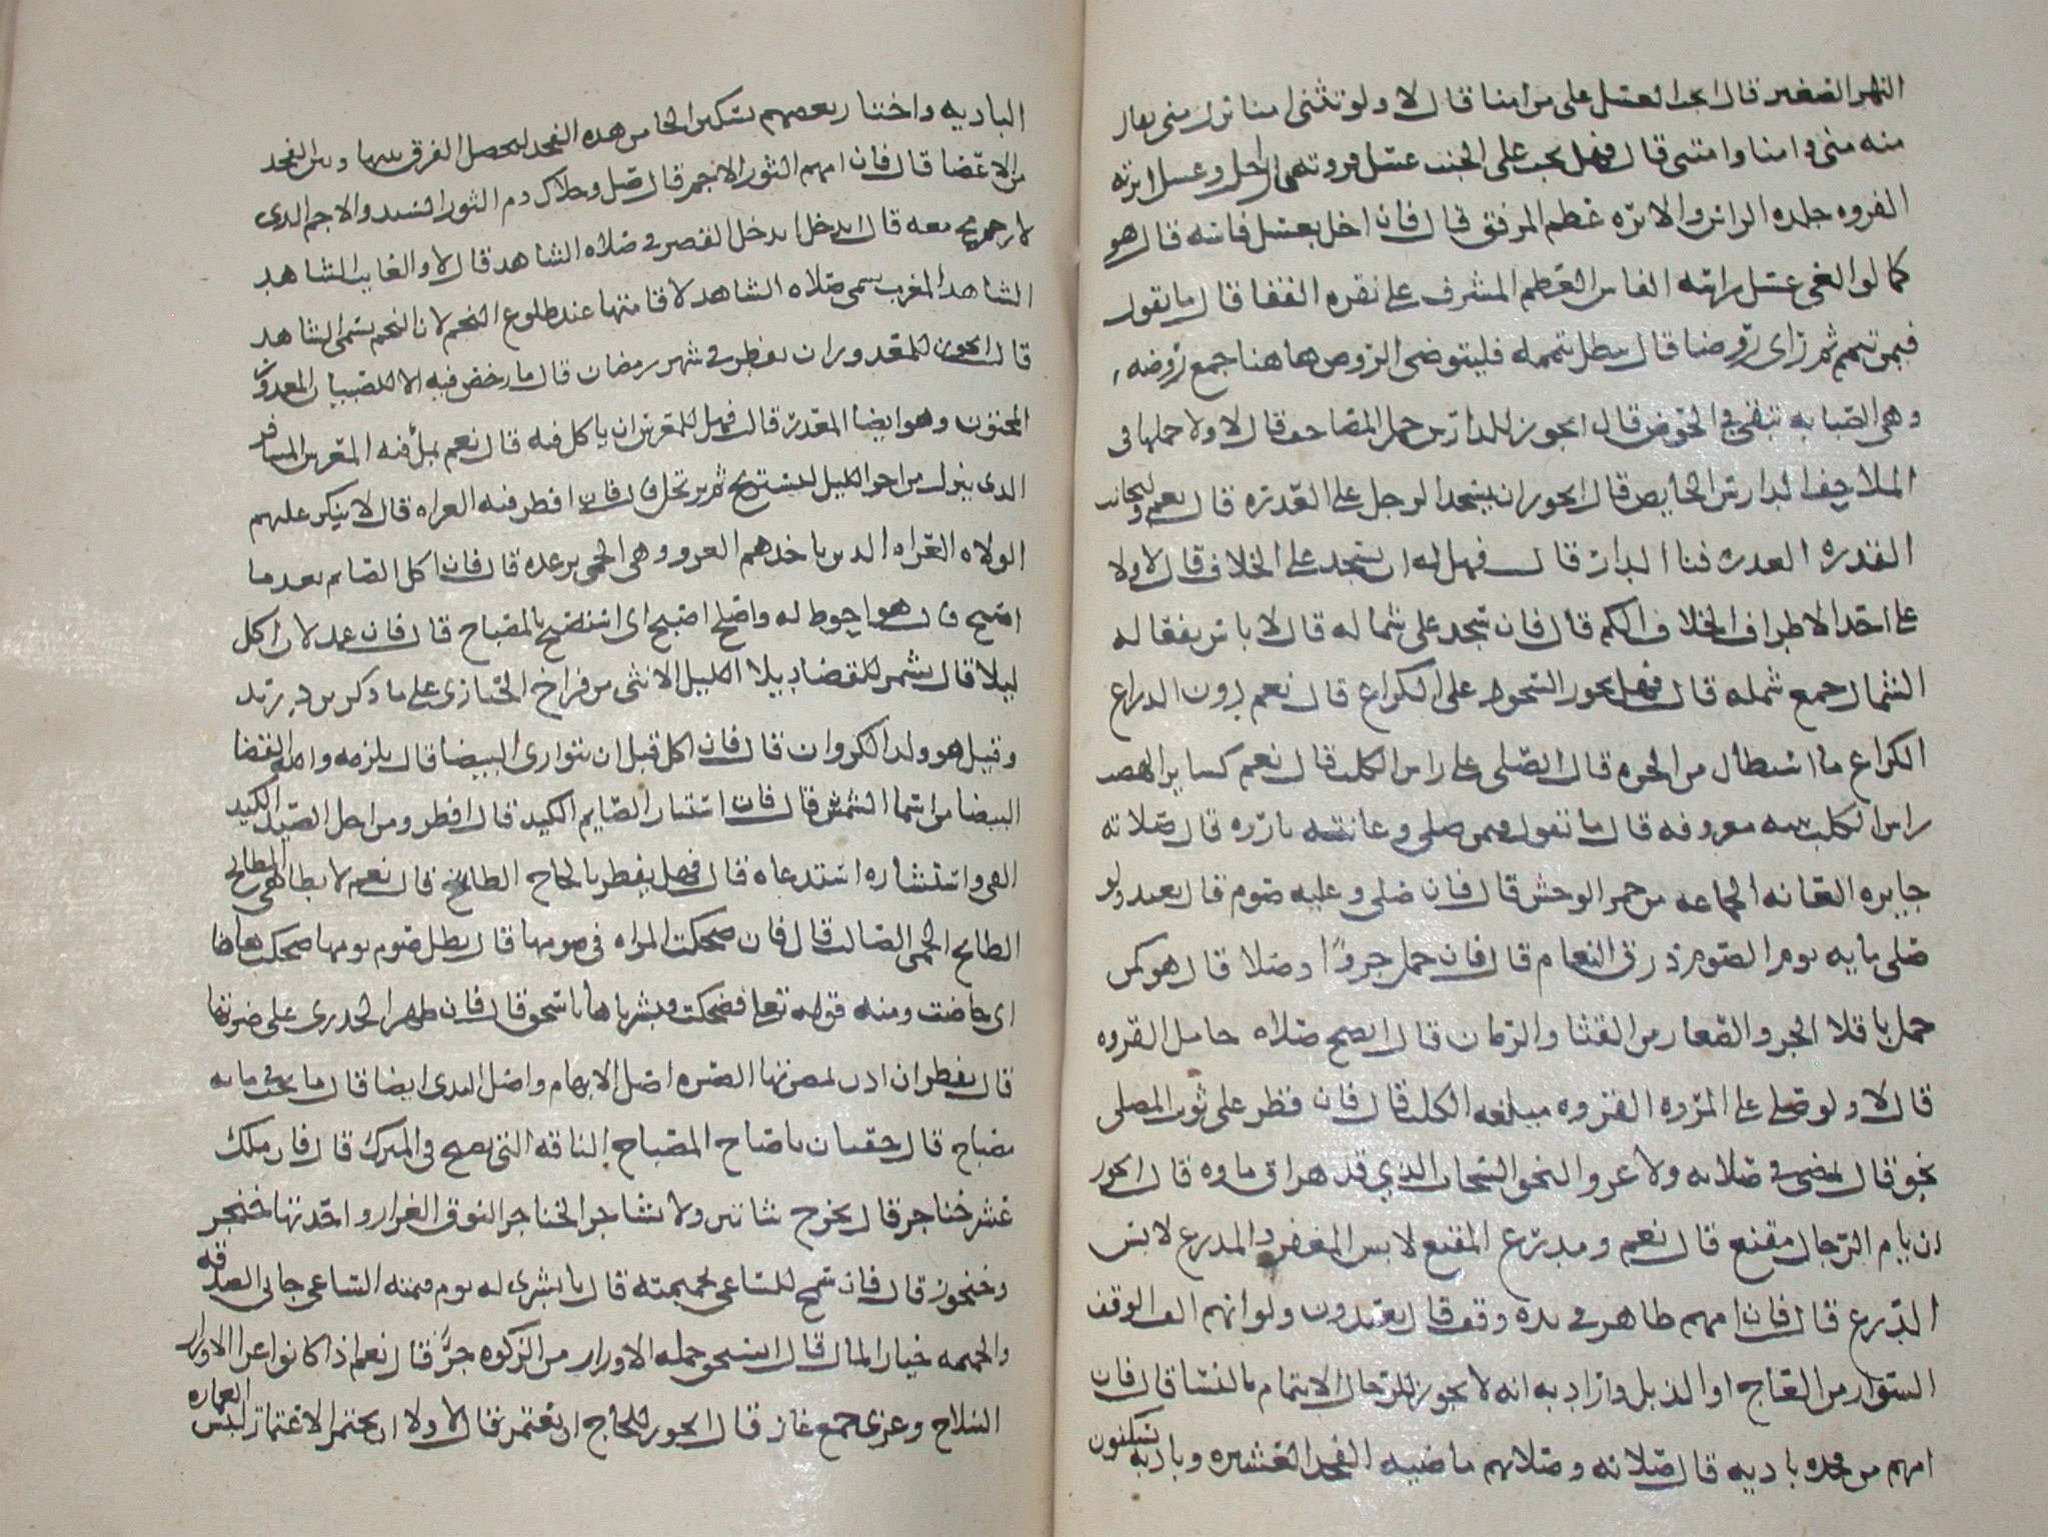 النهر الصغير قال ايجب الغسل على من امنا قال لا ولو تثنى امنا نزل منى يقال
منه منى وامنا وامتنى قال فهل يجب على الجنب غسل فروته قال اجل وغسل ابرته
الفروه جلده الراس والابره عظم المرفق قال فان اخل بغسل فاسه قال هو
كما لو الغى غسل راسه الفاس العظم المشرف على نقره القفا قال ما يقول
فيمن تيمم ثم راى روضا قال بطل تيممه فليتوضى الروض هاهنا جمع روضه
وهى الصبابه تبقى في الحوض قال ايجوز للدارس حمل المصاحف قال لا ولا حملها فى
الملاحف الدارس الحايض قال ايجوز ان يسجد الرجل على العذره قال نعم وليجانب
القذره العذره فنا الدار قال فهل له ان يسجد على الخلاف قال لا ولا
على احد الاطراف الخلاف الكم قال فان سجد على شماله قال لا باس بفعاله
الشمال جمع شمله قال فهل يجوز السجود على الكراع قال نعم دون الدراع
الكراع ما استطال من الحره قال ايصلى على راس الكلب قال نعم كساير الهضب
راس الكلب ثنيه معروفه قال ما تقول فيمن صلى وعانته بارزه قال صلاته
جايزه العانه الجماعه من حمر الوحش قال فان صلى وعليه صوم قال يعيد ولو
صلى مايه يوم الصوم ذرق النعام قال فان حمل جروًا وصلا قال هو كمن
حمل باقلا الجرو الصغار من القثا والرمان قال ايصح صلاه حامل القروه
قال لا ولو صلى على المروه القروه ميلغه الكلب قال فان قطر على ثوب المصلى
نجو قال يمضى في صلاته ولا غرو النجو السحاب الذي قد هراق ماوه قال ايجوز
ان يام الرجال مقنع قال نعم ومدرع المقنع لابس المغفر والمدرع لابس
الدرع قال فان امهم طاهر في يده وقف قال يعيدون ولو انهم الف الوقف
السوار من العاج او الذبل واراد به انه لا يجوز للرجال الايتمام بالنسا قال فان
امهم من فخده باديه قال صلاته وصلاتهم ماضيه الفخد العشيره وباديه يسكنون
الباديه واختار بعضهم تسكين الخا من هده الفخد ليحصل الفرق بينها وبين الفخد
من الاعضا قال فان امهم الثور الاجم قال صل وخلاك دم الثور السيد والاجم الدى
لا رمح معه قال ايدخل القصر في صلاه الشاهد قال لا والغايب الشاهد
الشاهد المغرب سمى صلاه الشاهد لاقامتها عند طلوع النجم لان النجم يسمى الشاهد
قال ايجوز للمعدور ان يفطر في شهر رمضان قال ما رخص فيه الا للصبيان المعدور
المختون وهو ايضا المعدر قال فهل للمعرس ان ياكل فيه قال نعم بملء فيه المعرس المسافر
الدى ينزل من اخر الليل ليستريح ثم يرتحل قال فان افطر فيه العراه قال لا ينكر عليهم
الولاه العراه الدين تاخدهم العروا وهى الحمى برعده قال فان اكل الصايم بعد ما
اصبح قال هو احوط له واصلح اصبح اى استصبح بالمصباح قال فان عمد لان اكل
ليلا قال يشمر للقضا ديلا الليل الانثى من فراخ الحبارى على ما ذكر بن دريد
وقيل هو ولد الكروان قال فان اكل قبل ان تتوارى البيضا قال يلزمه والله القضا
البيضا من اسما الشمش قال فان استثار الصايم الكيد قال افطر ومن احل الصيد الكيد
القى واستثاره استدعاه قال فهل يفطر بالحاح الطابخ قال نعم لا بطاهى المطابخ
الطابخ الحمى الصالب قال فان ضحكت المراه في صومها قال بطل صوم يومها ضحكت هاهنا
اى حاضت ومنه قوله تعالى فضحكت فبشرناها باسحق قال فان ظهر الجدرى على ضرتها
قال يفطر ان ادن بمضرتها الضره اصل الابهام واصل الثدى ايضا قال ما يجب في مايه
مصباح قال حقتان يا صاح المصباح الناقه التى تصبح فى المبرك قال فان ملك
عشر خناجر قال يخرج شاتين ولا يشاجر الخناجر النوق الغزار واحدتها خنجر
وخنجور قال فان سمح للساعى بحميمته قال يا بشرى له يوم قيمته الساعى جابى الصدقه
والحميمه خيار المال قال ايستحق حمله الاوزار من الزكوه جزءًا قال نعم اذا كانوا غزا الاوزار
السلاح وغزى جمع غاز قال ايجوز للحاج ان يعتمر قال لا ولا ان يختمر الاعتمار لبس العماره